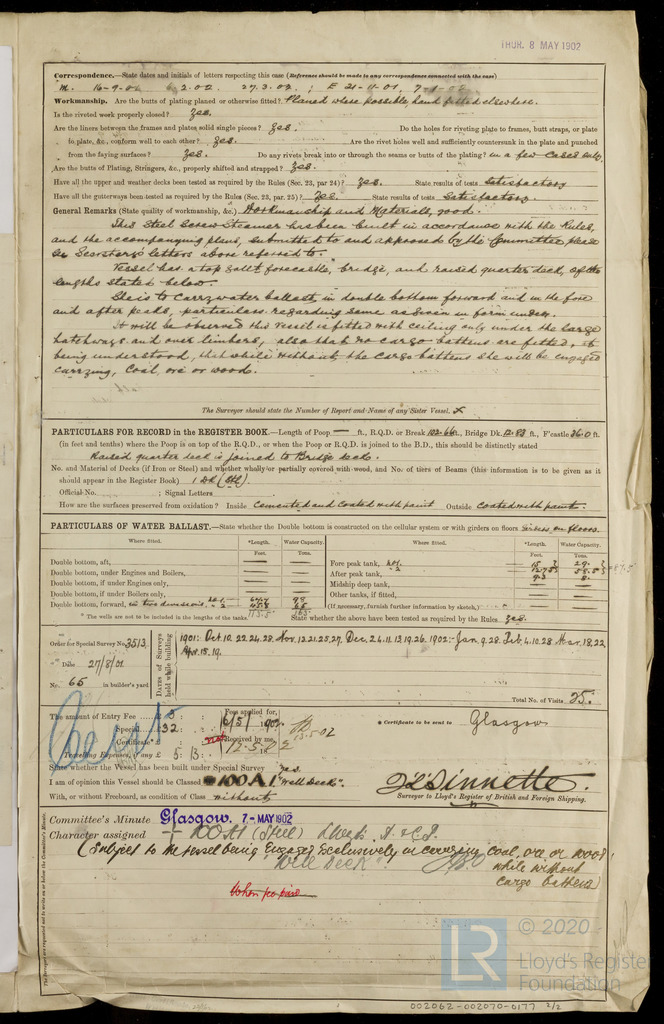 THUR. 8 MAY 1902
Correspondence.—State dates and initials of letters respecting this case (Reference should be made to any correspondence connected with the case)
M. 16-9-01 2.02 27.3.02 ; E 21-11-01, 7-1-02
Workmanship. Are the butts of plating planed or otherwise fitted? Planed where possible, hand fitted elsewhere.
Is the riveted work properly closed? Yes.
Are the liners between the frames and plates solid single pieces? Yes. Do the holes for riveting plate to frames, butt straps, or plate
to plate, &c., conform well to each other? Yes. Are the rivet holes well and sufficiently countersunk in the plate and punched
from the faying surfaces? Yes. Do any rivets break into or through the seams or butts of the plating? in a few cases only.
Are the butts of Plating, Stringers, &c., properly shifted and strapped? Yes.
Have all the upper and weather decks been tested as required by the Rules (Sec. 23, par 24)? Yes. State results of tests Satisfactory
Have all the gutterways been tested as required by the Rules (Sec. 23, par. 25)? Yes. State results of tests Satisfactory.
General Remarks (State quality of workmanship, &c.) Workmanship and Materials, good.
This Steel Screw Steamer has been built in accordance with the Rules,
and the accompanying plans, submitted to and approved by the Committee please
see Secretary's letters above referred to.
Vessel has a top gallt forecastle, bridge, and raised quarter deck, of the
lengths stated below.
She is to carry water ballast, in double bottom forward and in the fore
and after peaks, particulars regarding same as given in form under.
It will be observed this Vessel is fitted with ceiling only under the large
hatchways and over limbers, also that no cargo battens are fitted, it
being understood, that while without the cargo battens she will be engaged
carrying, Coal, ore or wood.
The Surveyor should state the Number of Report and Name of any Sister Vessel.
PARTICULARS FOR RECORD in the REGISTER BOOK.—Length of Poop — ft., R.Q.D. or Break 102.66 ft., Bridge Dk. 12.83 ft., F'castle 36.0 ft.
(in feet and tenths) where the Poop is on top of the R.Q.D., or when the Poop or R.Q.D. is joined to the B.D., this should be distinctly stated
Raised quarter deck is joined to Bridge deck.
No. and Material of Decks (if Iron or Steel) and whether wholly or partially covered with wood, and No. of tiers of Beams (this information is to be given as it
should appear in the Register Book) 1 Dk (Stl)
Official No. ; Signal Letters
How are the surfaces preserved from oxidation? Inside Cemented and coated with paint Outside coated with paint.
PARTICULARS OF WATER BALLAST.—State whether the Double bottom is constructed on the cellular system or with girders on floors Girders on floors.
Where fitted. *Length. Water Capacity. Where fitted. *Length. Water Capacity.
Feet. Tons. Feet. Tons.
Double bottom, aft, — — Fore peak tank, No1. 15 29
Double bottom, under Engines and Boilers, — — " 2
Double bottom, if under Engines only, — — After peak tank, 9.3 8.
Double bottom, if under Boilers only, — — Midship deep tank, — —
Double bottom, forward, in two divisions. No 1. 67.7 98 Other tanks, if fitted, — —
" 2 45.8 65 (If necessary, furnish further information by sketch.)
113.5 163
* The wells are not to be included in the lengths of the tanks. State whether the above have been tested as required by the Rules Yes.
Order for Special Survey No. 3513
Date 27/8/01
No. 65 in builder's yard
DATES of Surveys held while building
1901: Oct. 10, 22, 24, 28. Nov. 12, 21, 25, 27. Dec. 2, 4, 11, 13, 19, 26. 1902:- Jan. 9, 28. Feb. 4, 10, 28. Mar. 18, 22
Apr. 15. 19.
Total No. of Visits 25.
The amount of Entry Fee £ 5 : : Fees applied for,
Special 32 : : 6/5/1902.
Certificate : : Received by me,
Travelling Expenses, if any £ 5 : 13 : 12.5.02
13.5.02
* Certificate to be sent to Glasgow
State whether the Vessel has been built under Special Survey Yes.
I am of opinion this Vessel should be Classed 100 A 1 "Well Deck".
With, or without Freeboard, as condition of Class without
Surveyor to Lloyd's Register of British and Foreign Shipping.
Committee's Minute Glasgow. 7 - MAY 1902
Character assigned + 100A1 (Steel)
(Subject to the vessel being engaged exclusively in carrying coal, ore or wood,
"Well Deck" while without
cargo battens)
When fee paid
The Surveyors are requested not to write on or below the Committee's Minute.
© 2020
LR
Lloyd's Register
Foundation
002062-002070-0177 2/2